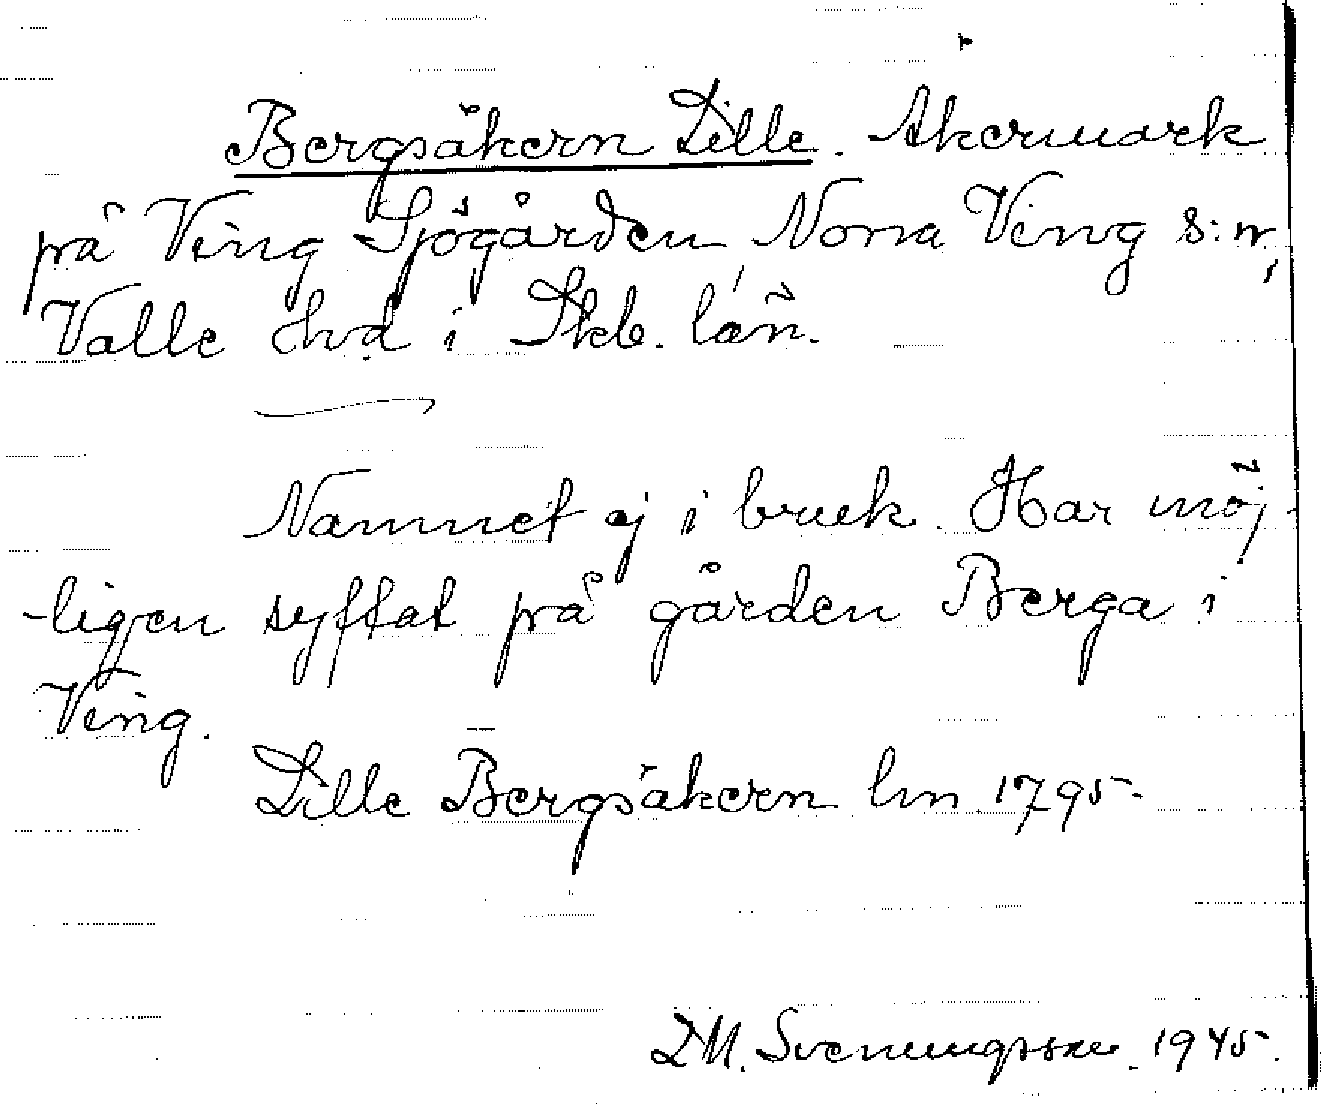 Bergsåkern Lille. Åkermark
på Ving Sjögården Norra Ving s:n,
Valle hvd i Skb. län.
Namnet ej i bruk. Har möj-
-ligen syftat på gården Berga i
Ving.
Lille Bergsåkern lm 1795.
L M. Svenungsson. 1945.